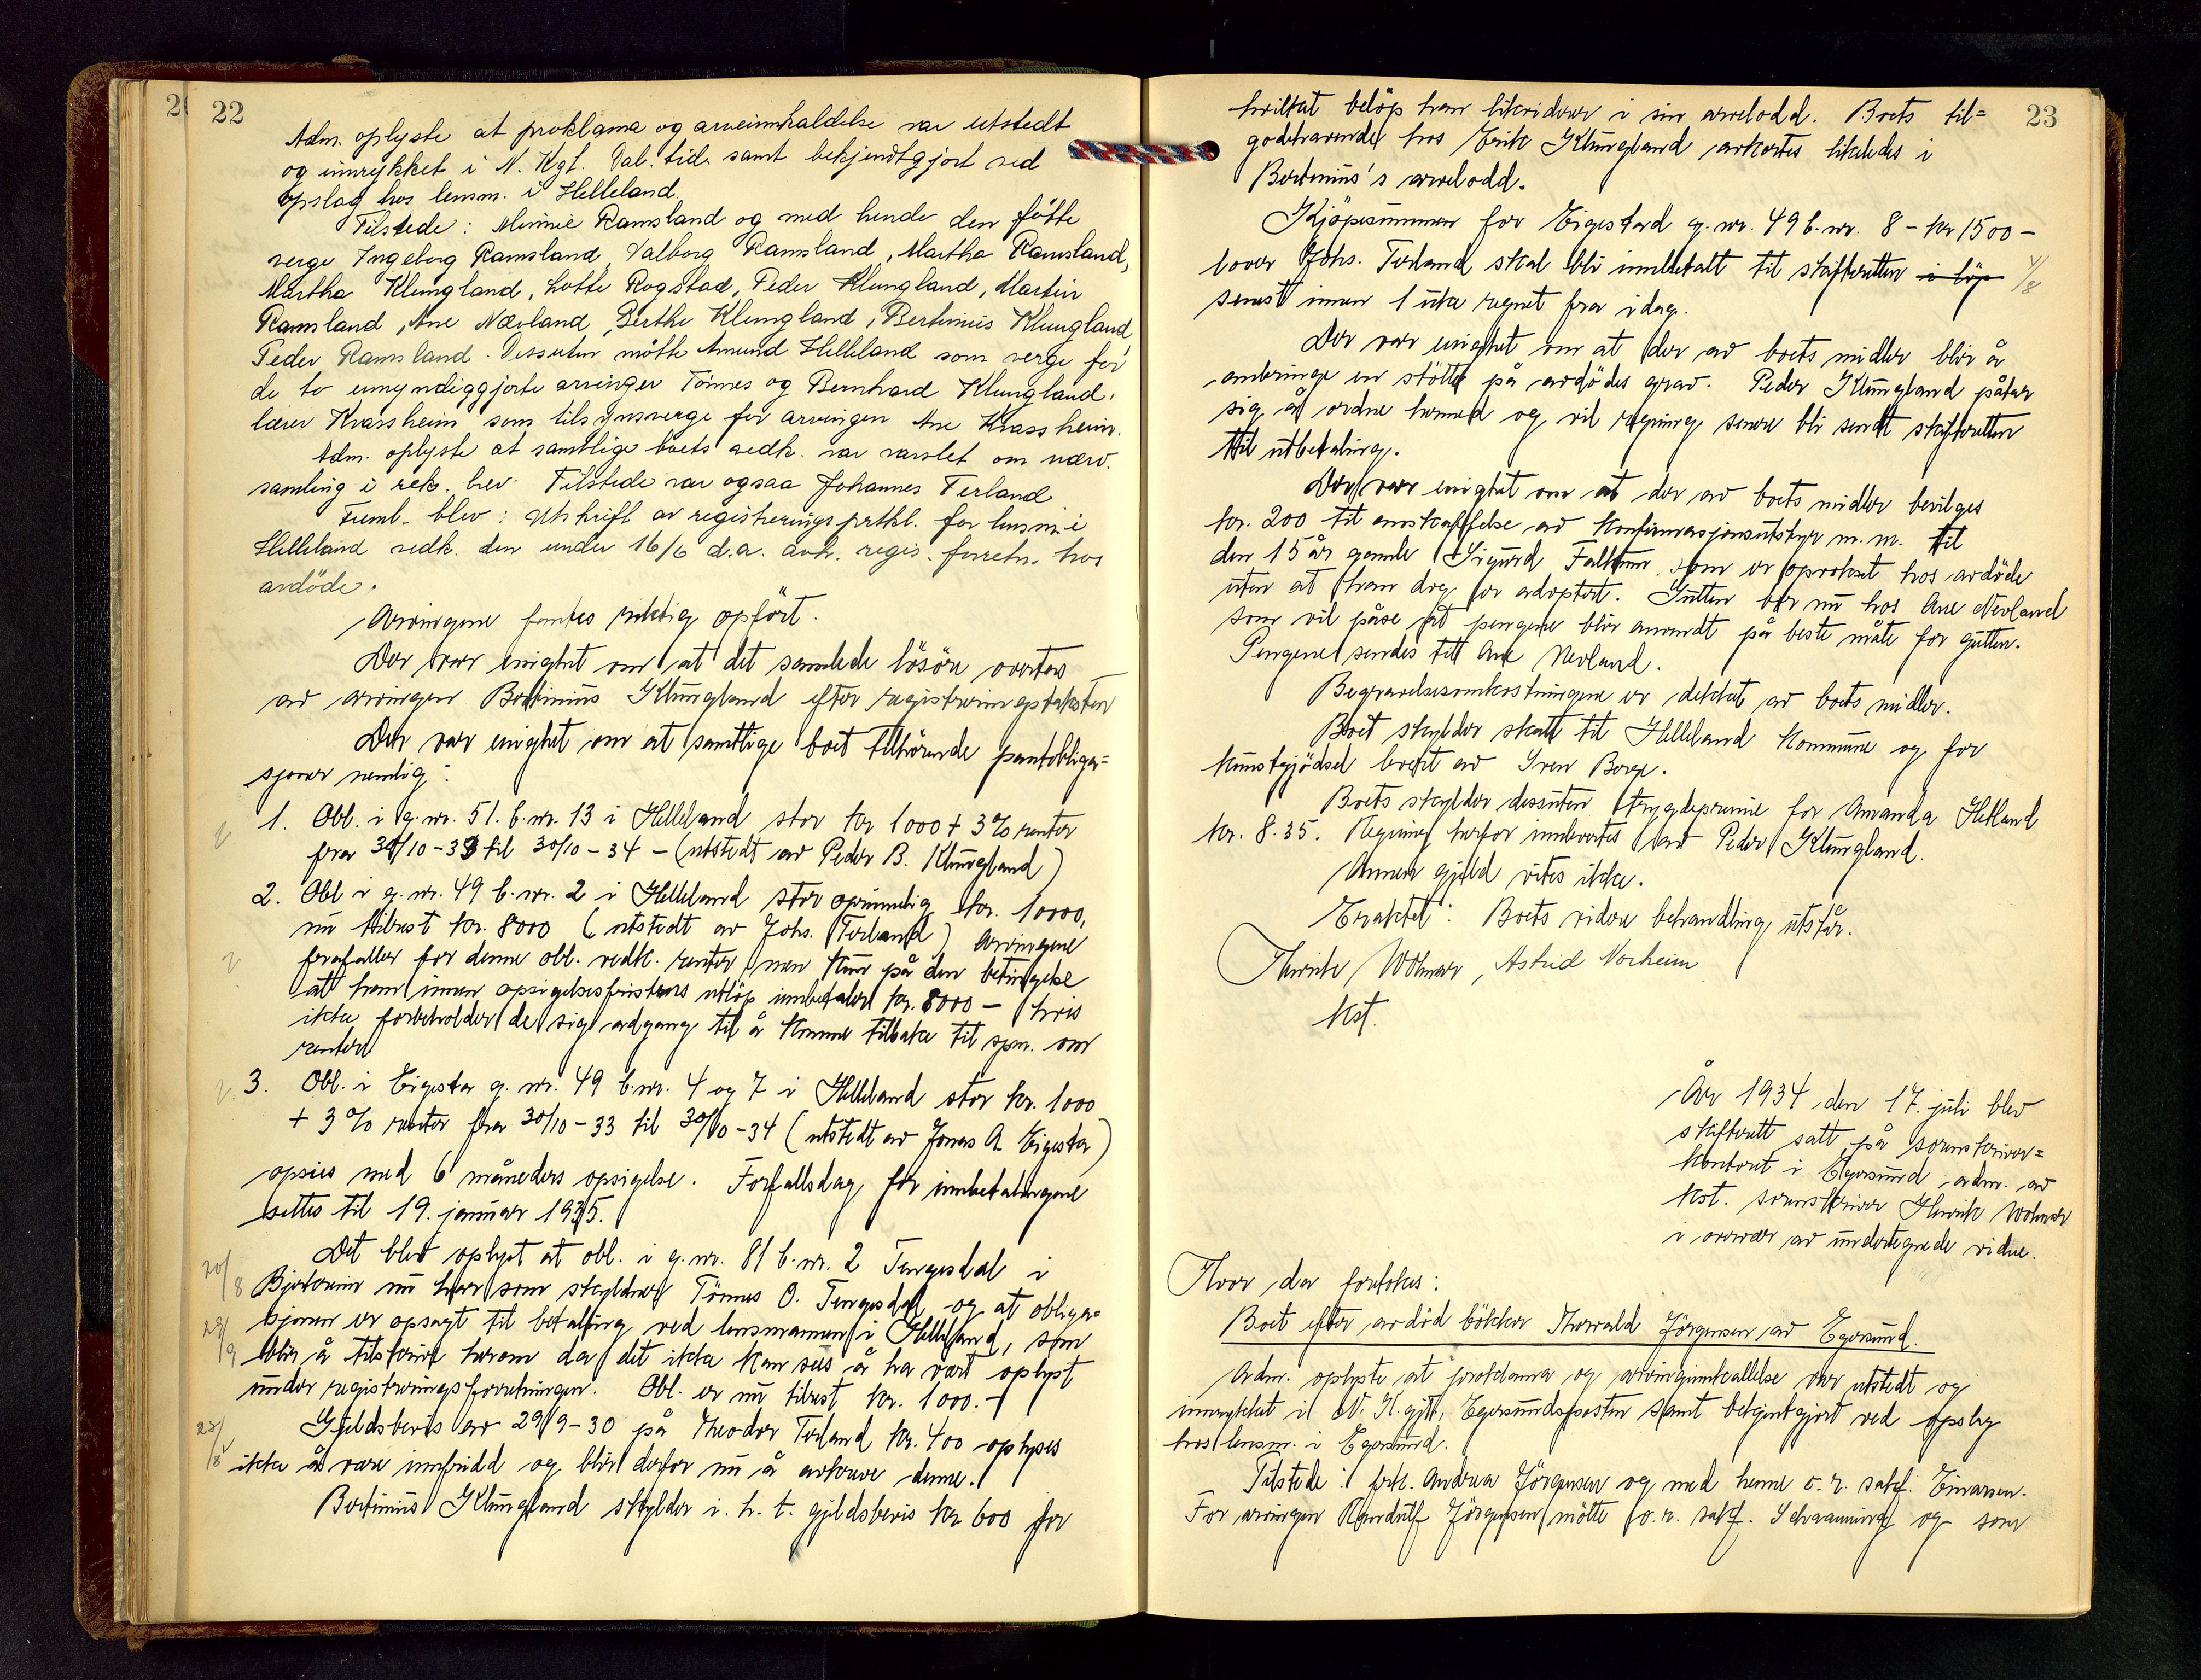 22
Adm. oplyste at proklama og arveinnkaldelse var utstedt
og innrykket i N. Kgt. Dal. tid. samt bekjendtgjort ved
opslag hos lensm. i Helleland.
Tilstede: Minnie Ramsland og med hende den fötte
verge Ingeborg Ramsland, Valborg Ramsland, Martha Ramsland,
Martha Klungland, Lotte Rogstad, Peder Klungland, Martin
Ramsland, Ane Nævland, Berthe Klungland, Bertinius Klungland
Peder Ramsland. Dessuten mötte Amund Helleland som verge for
de to umyndiggjorte arvinger Tönnes og Bernhard Klungland,
lærer Krassheim som tilsynsverge for arvingen Ane Krassheim.
Adm. oplyste at samtlige boets vedk. var varslet om nærv.
samling i rek. brev. Tilstede var ogsaa Johannes Terland
Freml. blev: Utskrift av registreringsprtkl. for lensm. i
Helleland vedk. den under 16/6 d.a. avh. regis. forretn. hos
avdöde.
Arvingene fantes riktig opfört.
Der var enighet om at det samlede lösöre overtas
av arvingen Bertinius Klungland efter registreringstaksten
Der var enighet om at samtlige boet tilhörende pantobliga=
sjoner nemlig:
1. Obl. i g.nr. 51. b.nr. 13 i Helleland stor kr 1000 + 3% renter
fra 30/10-33 til 30/10-34 - (utstedt av Peder B. Klungland)
2. Obl i g.nr. 49 b.nr. 2 i Helleland stor oprinnelig kr. 10000,
nu tilrest kr. 8000 (utstedt av Johs. Terland) Arvingene
frafaller for denne obl. vedk. renter men kun på den betingelse
at han innen opsigelsesfristens utlöp innbetaler kr. 8000 - hvis
ikke forbeholder de sig adgang til å komme tilbake til spm. om
renter
3. Obl. i Eigesta g.nr. 49 b.nr. 4 og 7 i Helleland stor kr. 1000
+ 3% renter fra 30/10-33 til 30/10-34 (utstedt av Jonas A. Eigesta)
opsies med 6 måneders opsigelse. Forfallsdag for innbetalingene
settes til 19. januar 1935.
20/8
Det blev oplyst at obl. i g.nr. 81 b.nr. 2 Tengesdal i
Bjerkreim nu har som skyldner Tönnes O. Tengesdal og at obliga=
29/9
sjonen er opsagt til betaling ved lensmannen i Helleland, som
blir å tilskrive herom da det ikke kan sees å ha vært oplyst
under registreringsforretningen. Obl. er nu tilrest kr. 1000.-
Gjeldsbevis av 29/9-30 på Theodor Terland kr. 400 oplyses
ikke å være innfridd og blir derfor nu å avkreve denne.
Bertinius Klungland skylder i. h. t. gjeldsbevis kr 600 for
23
hvilket belöp han likviderer i sin arvelodd. Boets til=
godehavende hos Erik Klungland avkortes likeledes i
Bertinius's arvelodd.
Kjöpesummen for Eigestad g.nr. 49 b.nr. 8 - kr 1500 -
lover Johs. Terland skal bli innbetalt til skifteretten i löp
senest innen 1 uke regnet fra idag.
Der var enighet om at der av boets midler blir å
anbringe en stötte på avdödes grav. Peder Klungland påtar
sig å ordne hermed og vil regning senere bli sendt skifteretten
til utbetaling.
Der var enighet om at der av boets midler bevilges
kr. 200 til anskaffelse av konfirmasjonsutstyr m.m. til
den 15 år gamle Sigurd Falkum som er oprokset hos avdöde
uten at han dog er adoptert. Gutten bor nu hos Ane Nevland
som vil påse at pengene blir anvendt på beste måte for gutten.
Pengene sendes til Ane Nevland.
Begravelsesomkostningene er dekket av boets midler.
Boet skylder skatt til Helleland kommune og for
kunstgjödsel levert av Sven Berge.
Boets skylder dessuten trygdepremie for Amanda Hetland
kr. 8.35. Regning herfor innleveres av Peder Klungland.
Annen gjeld vites ikke.
Eraktet: Boets videre behandling utstår.
Henrik Wolmer, Astrid Norheim
kst.
År 1934 den 17. juli blev
skifterett satt på sorenskriver=
kontoret i Egersund, adm. av
kst. sorenskriver Henrik Wolmer
i overvær av undertegnede vidne.
Hvor da foretokes:
Boet efter avdöd bökker Thorvald Jörgensen av Egersund.
Adm. oplyste at proklama og arvinginnkallelse var utstedt og
innrykket i N. K. gjt., Egersundsposten samt bekjentgjort ved opslag
hos lensm. i Egersund.
Tilstede: frk. Andrea Jörgensen og med henne o.r. sakf. Einarsen.
For arvingen Randulf Jörgensen mötte o.r. sakf. Schaanning og som